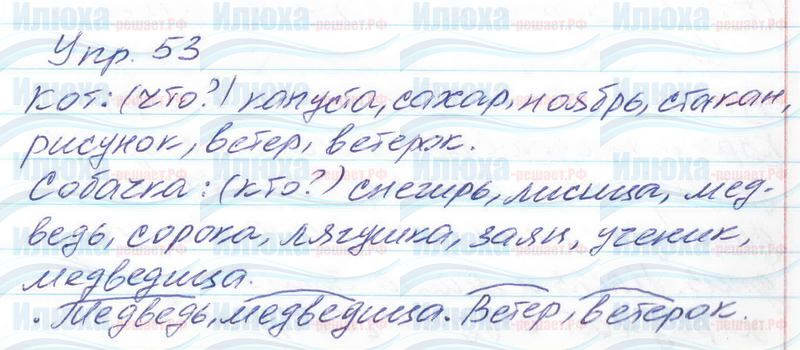 Упр. 53
Кот: (что?) капуста, сахар, ноябрь, стакан,
рисунок, ветер, ветерок.
Собачка: (кто?) снегирь, лисица, мед-
ведь, сорока, лягушка, заяц, ученик,
медведица.
. Медведь, медведица. Ветер, ветерок.